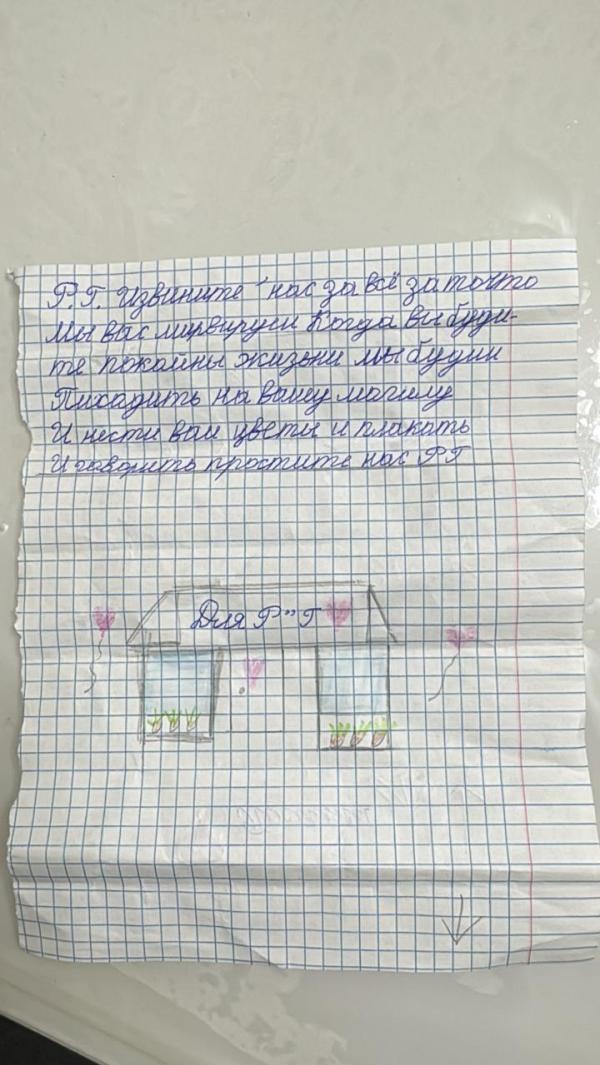 Р.Г. Извините нас за всё за то что
Мы вас нирвируем Когда вы буди-
те покойны жизьни мы будим
Пиходить на вашу могилу
И нести вам цветы и плакать
И говорить простите нас РГ
Для Р"Г